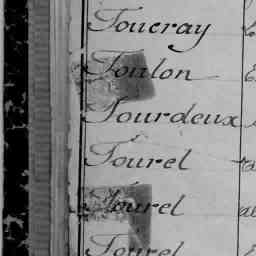 Toucray
Toulon
Tourdeux
Tourel
Tourel
Tourel